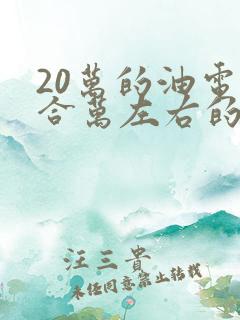 20萬的油電
合萬左右的
汪三貴
未经同意禁止转载